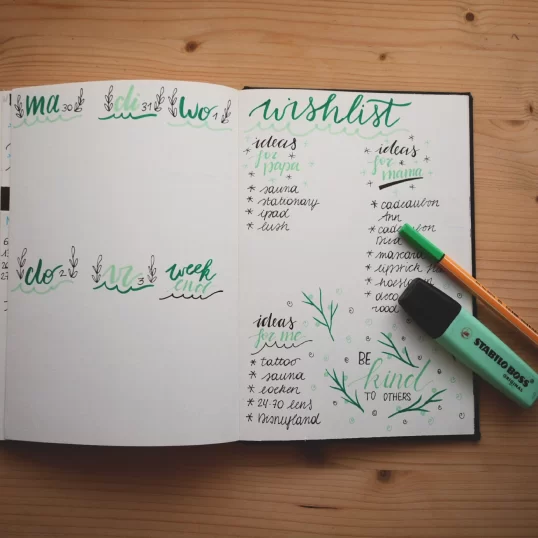 ma 30
di 31
Wo 1
do 2
vr 3
week
end
wishlist
ideas
for
papa
* sauna
* stationary
* ipad
* lush
ideas
for
mama
* cadeaubon
* mascara
* lipstick
* deco
room
ideas
for me
* tattoo
* sauna
* boeken
* 24-70 lens
* Disneyland
BE
kind
TO OTHERS
STABILO BOSS
ORIGINAL